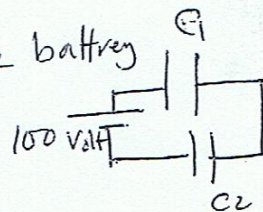 battrey
C1
100 Volt
C2